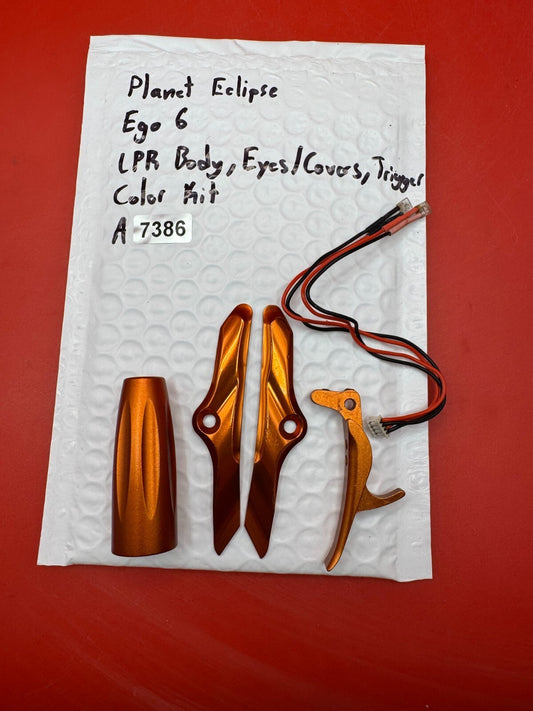 Planet Eclipse
Ego 6
LPR Body, Eyes/Covers, Trigger
Color Kit
A 7386